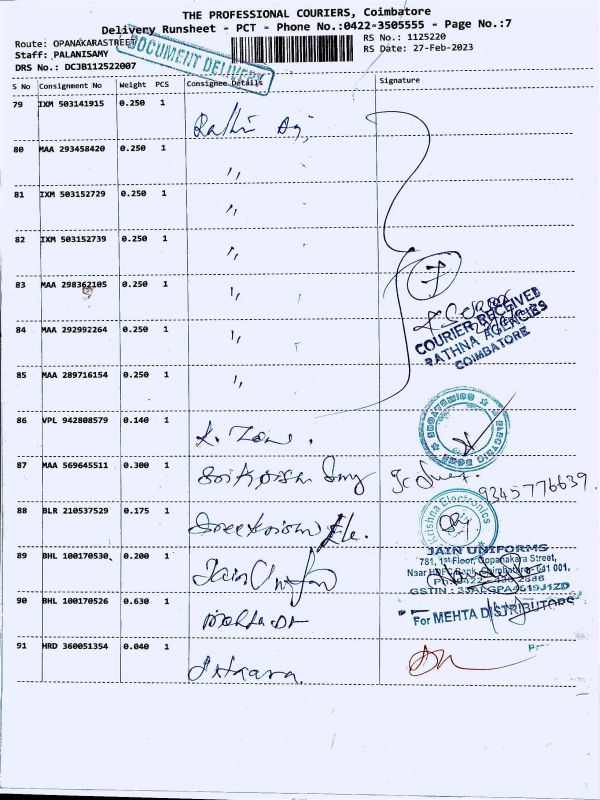 THE PROFESSIONAL COURIERS, Coimbatore
Delivery Runsheet - PCT - Phone No.:0422-3505555 - Page No.:7
Route: OPANAKARASTREET
RS No.: 1125220
Staff: PALANISAMY
RS Date: 27-Feb-2023
DRS No.: DCJB112522007
DOCUMENT DELIVERY
S No Consignment No Weight PCS Consignee Details Signature
79 IXM 503141915 0.250 1
80 MAA 293458420 0.250 1 ,,
81 IXM 503152729 0.250 1 ,,
82 IXM 503152739 0.250 1 ,,
83 MAA 298362105 0.250 1 ,,
7
COURIER RECEIVED
84 MAA 292992264 0.250 1 ,,
RATHNA AGENCIES
COIMBATORE
85 MAA 289716154 0.250 1 ,,
86 VPL 942808579 0.140 1 K. Zone.
87 MAA 569645511 0.300 1
9345776639.
88 BLR 210537529 0.175 1
Krishna Electronics
JAIN UNIFORMS
89 BHL 100170530 0.200 1 Jain Uniform
781, 1st Floor, Oppanakara Street,
Near HDFC Bank, Coimbatore-641 001.
90 BHL 100170526 0.630 1 Mehta
For MEHTA DISTRIBUTORS
91 HRD 360051354 0.040 1